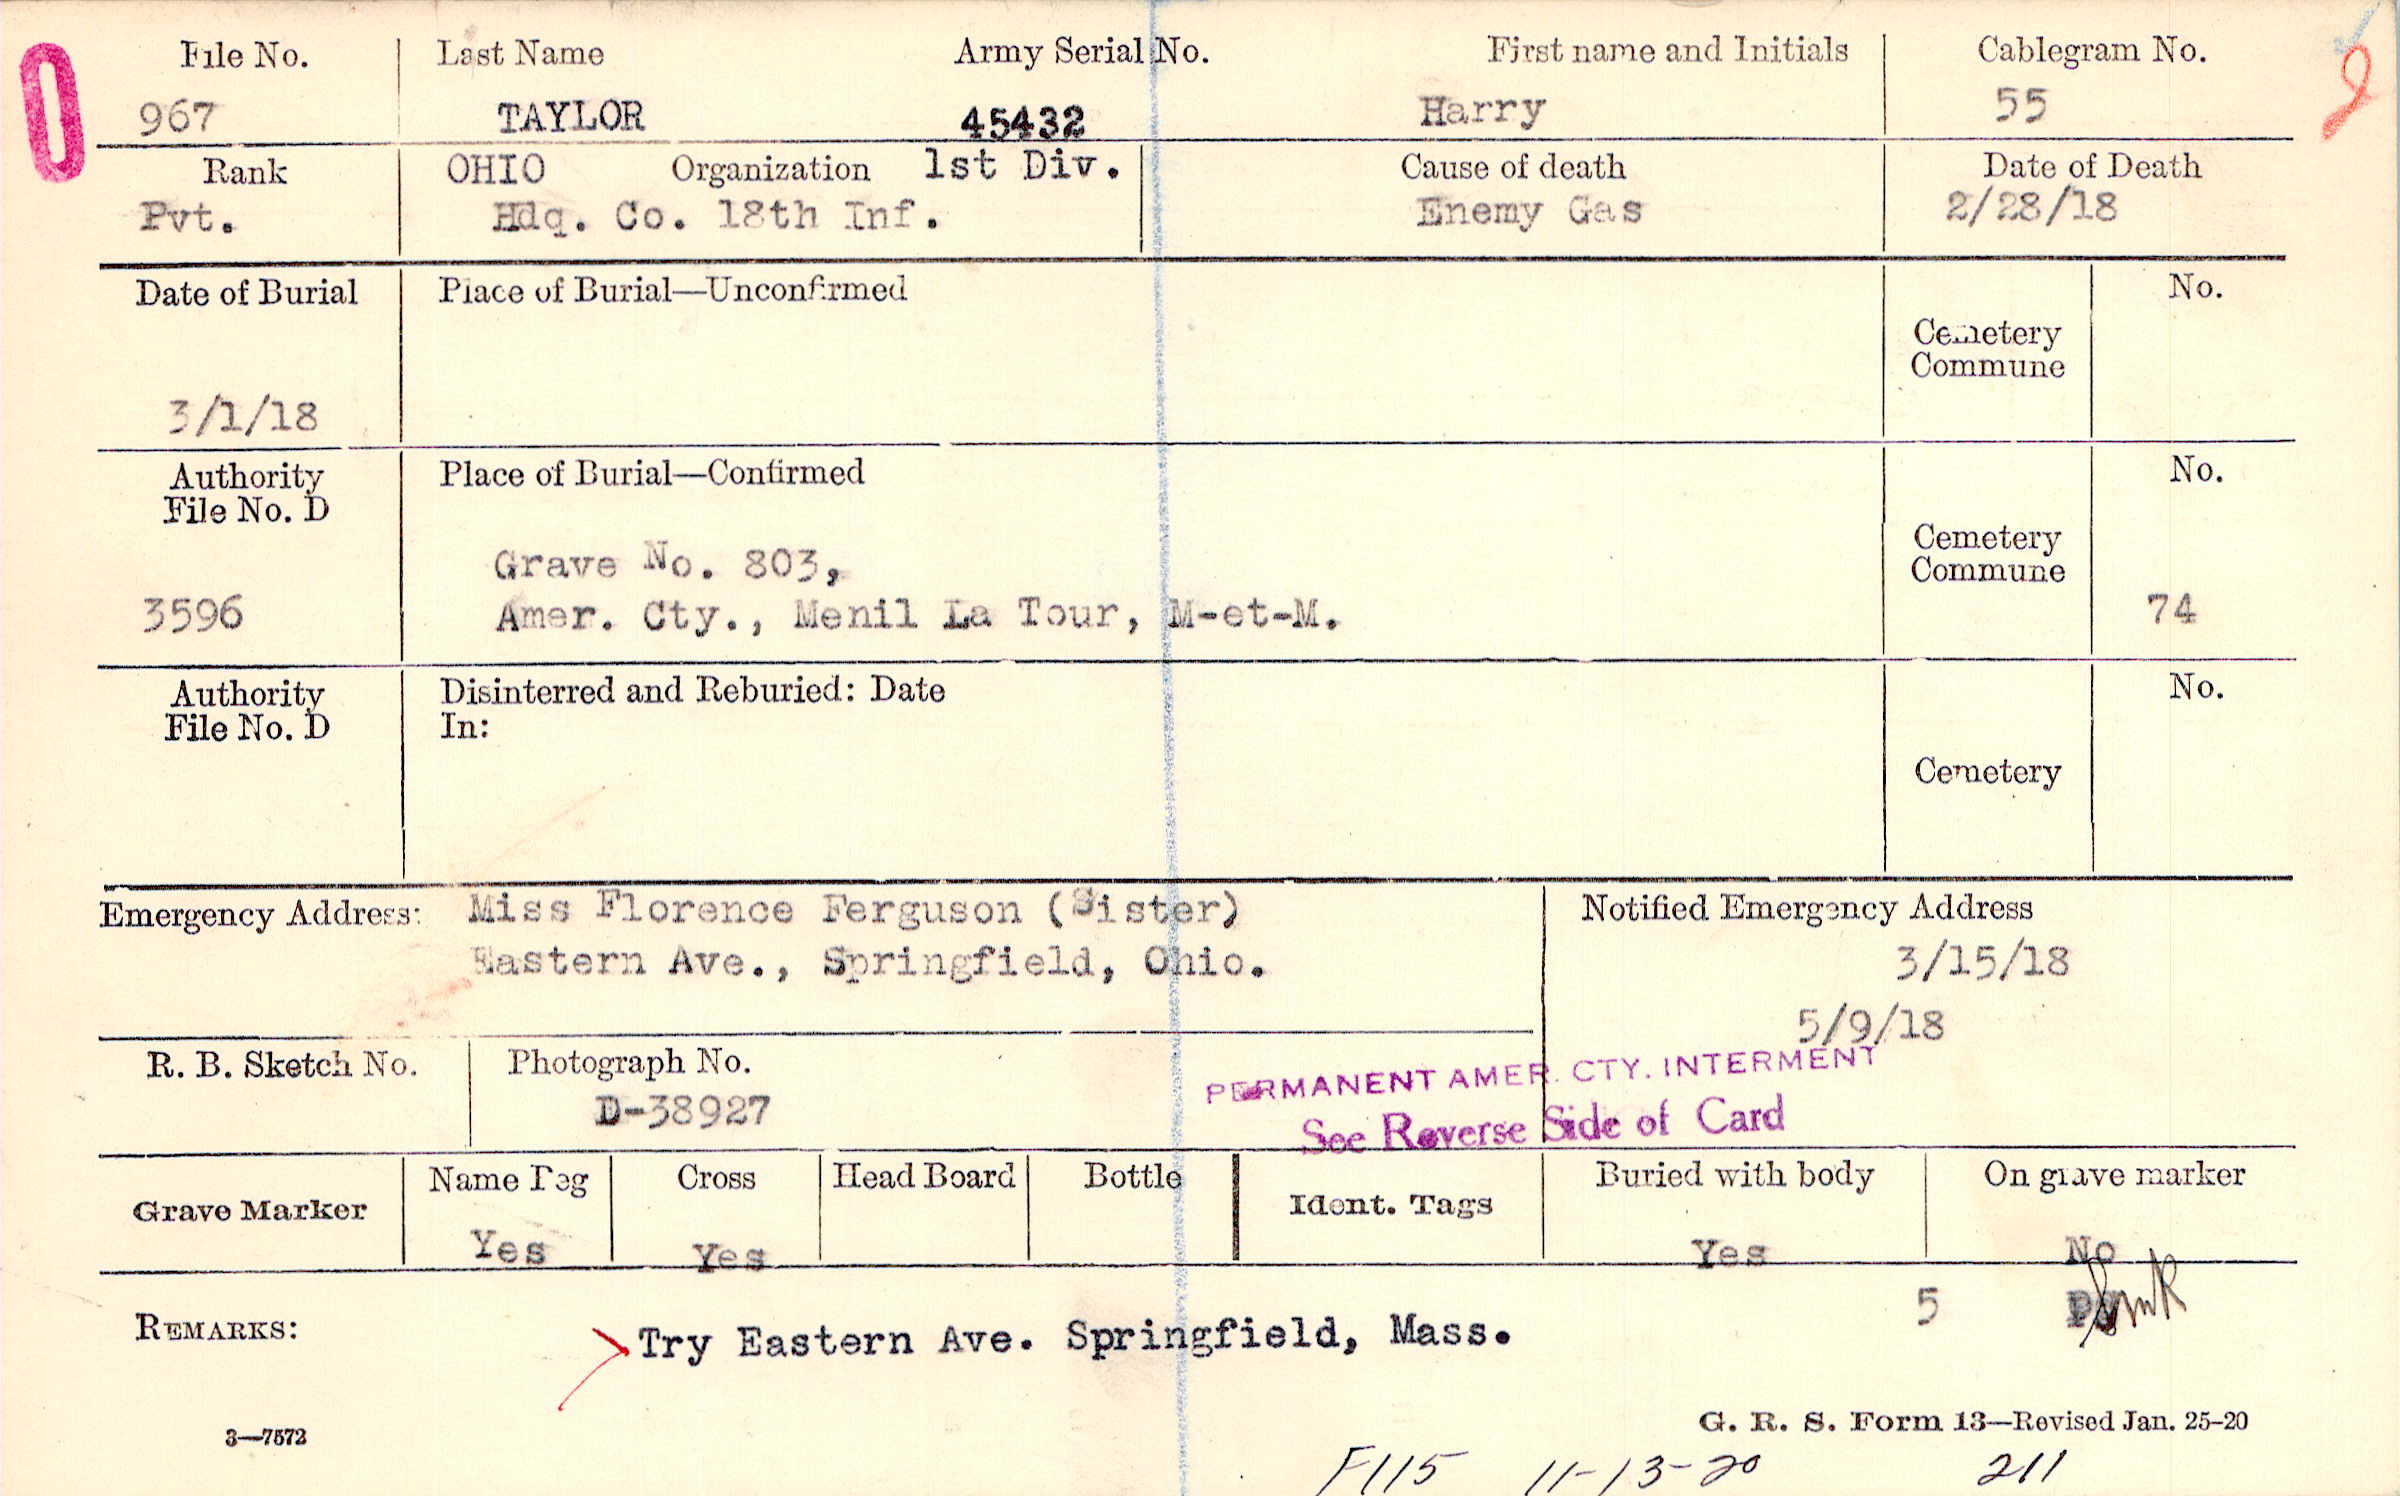 File No. Last Name Army Serial No. First name and Initials Cablegram No.
967 TAYLOR 45432 Harry 55
Rank OHIO Organization 1st Div. Cause of death Date of Death
Pvt. Hdq. Co. 18th Inf. Enemy Gas 2/28/18
Date of Burial Place of Burial—Unconfirmed No.
Cemetery
Commune
3/1/18
Authority Place of Burial—Confirmed No.
File No. D
Cemetery
Grave No. 803, Commune
3596 Amer. Cty., Menil La Tour, M-et-M. 74
Authority Disinterred and Reburied: Date No.
File No. D In:
Cemetery
Emergency Address: Miss Florence Ferguson (Sister) Notified Emergency Address
Eastern Ave., Springfield, Ohio. 3/15/18
5/9/18
R. B. Sketch No. Photograph No. PERMANENT AMER. CTY. INTERMENT
D-38927 See Reverse Side of Card
Grave Marker Name Peg Cross Head Board Bottle Ident. Tags Buried with body On grave marker
Yes Yes Yes No
5
REMARKS: Try Eastern Ave. Springfield, Mass.
3—7572 G. R. S. Form 13—Revised Jan. 25-20
F115 11-13-20 211